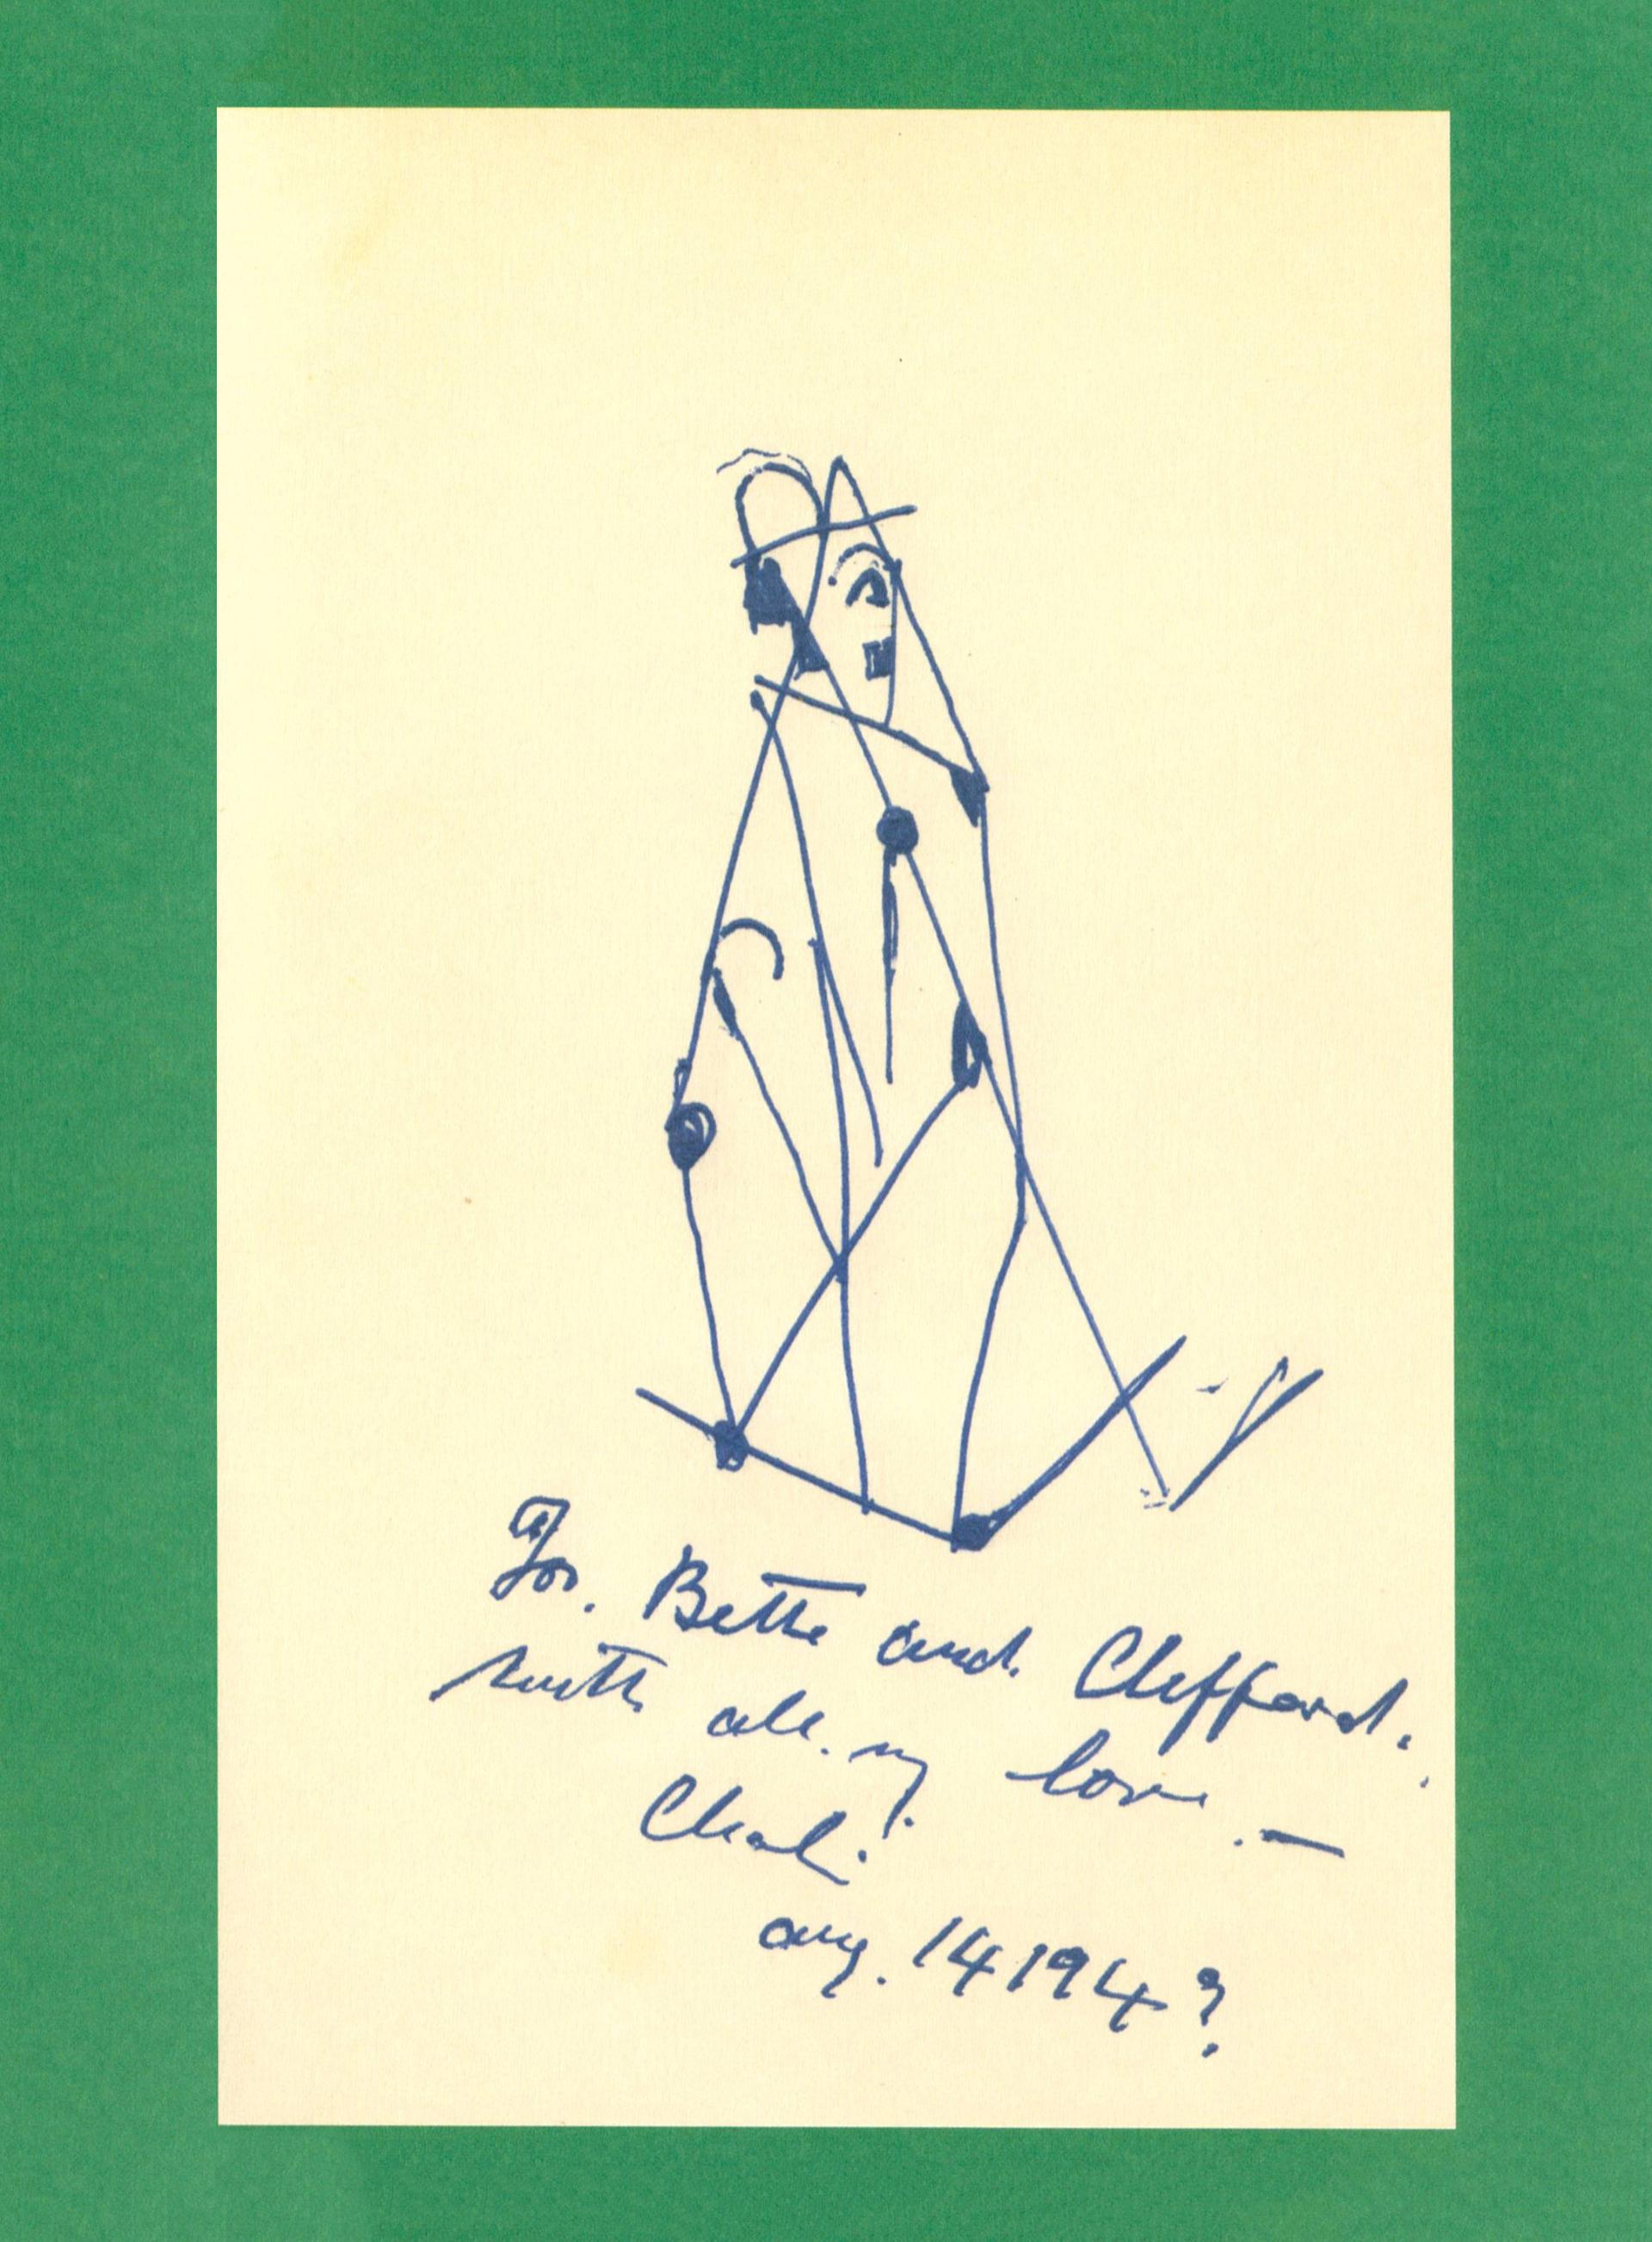 For. Bette and Clifford.
with all. my love. —
Charli.
aug. 14 194?